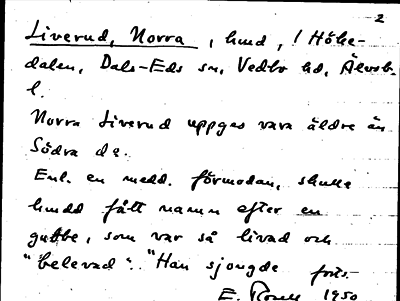 2
Liverud, Norra, hmd, i Höke-
dalen, Dals-Eds sn, Vedbo hd, Älvsb.
l.
Norra Liverud uppges vara äldre än
Södra d:o.
Enl. en medd. förmodan, skulle
hmdd fått namn efter en
gubbe, som var så livad och
"belevad". "Han sjongde forts.-
E. 1950